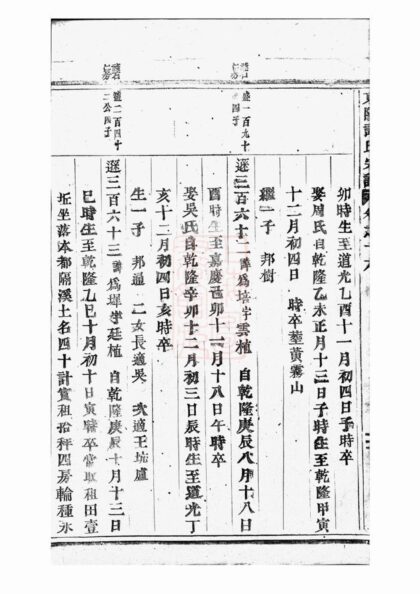 卯時生至道光乙酉十一月初四日子時卒
娶周氏自乾隆乙未正月十三日子時生至乾隆甲寅
十二月初四日 時卒葬黃霧山
繼一子 邦樹
遜三百六十二諱爲培字雲植 自乾隆庚辰八月十八日
酉時生至嘉慶己卯十一月十八日午時卒
娶吳氏自乾隆辛卯十二月初三日辰時生至道光丁
亥十二月初四日亥時卒
生一子 邦通 二女長適吳 次適王坑盧
遜三百六十三諱爲墀字廷植 自乾隆庚辰十月十三日
巳時生至乾隆乙巳十月初十日寅時卒當取租田壹
坵坐落本都隔溪土名四十計實租拾秤四房輪種永
一百九十
四子
一百四十
二公四子